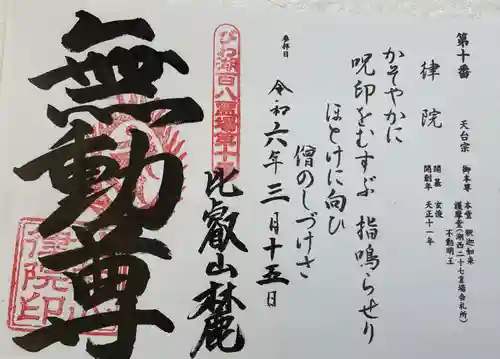 第十番
律院
天台宗
御本尊
本堂 釈迦如来
護摩堂(湖西二十七霊場会札所)
不動明王
開基 玄俊
開創年 天正十一年
かそやかに
呪印をむすぶ 指鳴らせり
ほとけに向ひ
僧のしづけさ
参拝日
令和六年三月十五日
びわ湖百八霊場第十番
比叡山麓
無動尊
律院印